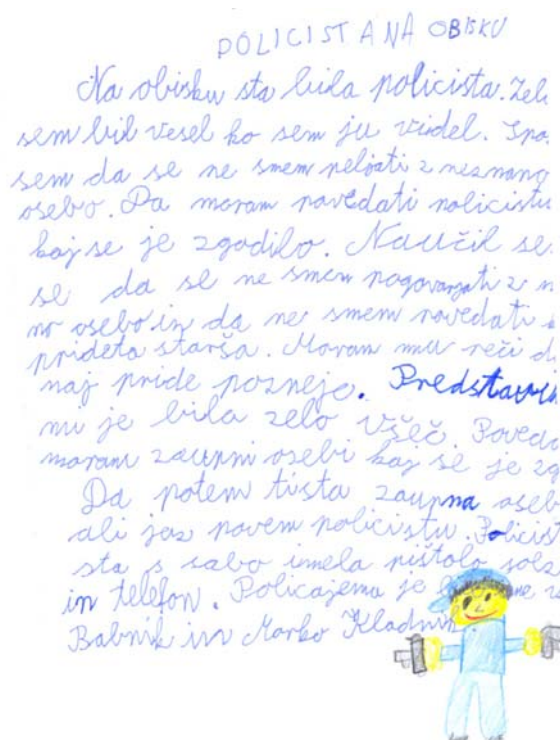 POLICISTA NA OBISKU
Na obisku sta bila policista. Zelo
sem bil vesel ko sem ju videl. Spo
sem da se ne smem peljati z neznano
osebo. Da moram povedati policistu
kaj se je zgodilo. Naučil se
se da se ne smem pogovarjati z n
no osebo in da ne smem povedati
prideta starša. Moram mu reči d
naj pride pozneje. Predstavi
mi je bila zelo všeč. Poveda
moram zaupni osebi kaj se je zg
Da potem tista zaupna oseb
ali jaz povem policistu. Policis
sta s sabo imela pištolo solz
in telefon. Policajema je ime
Babnik in Marko Kladnik